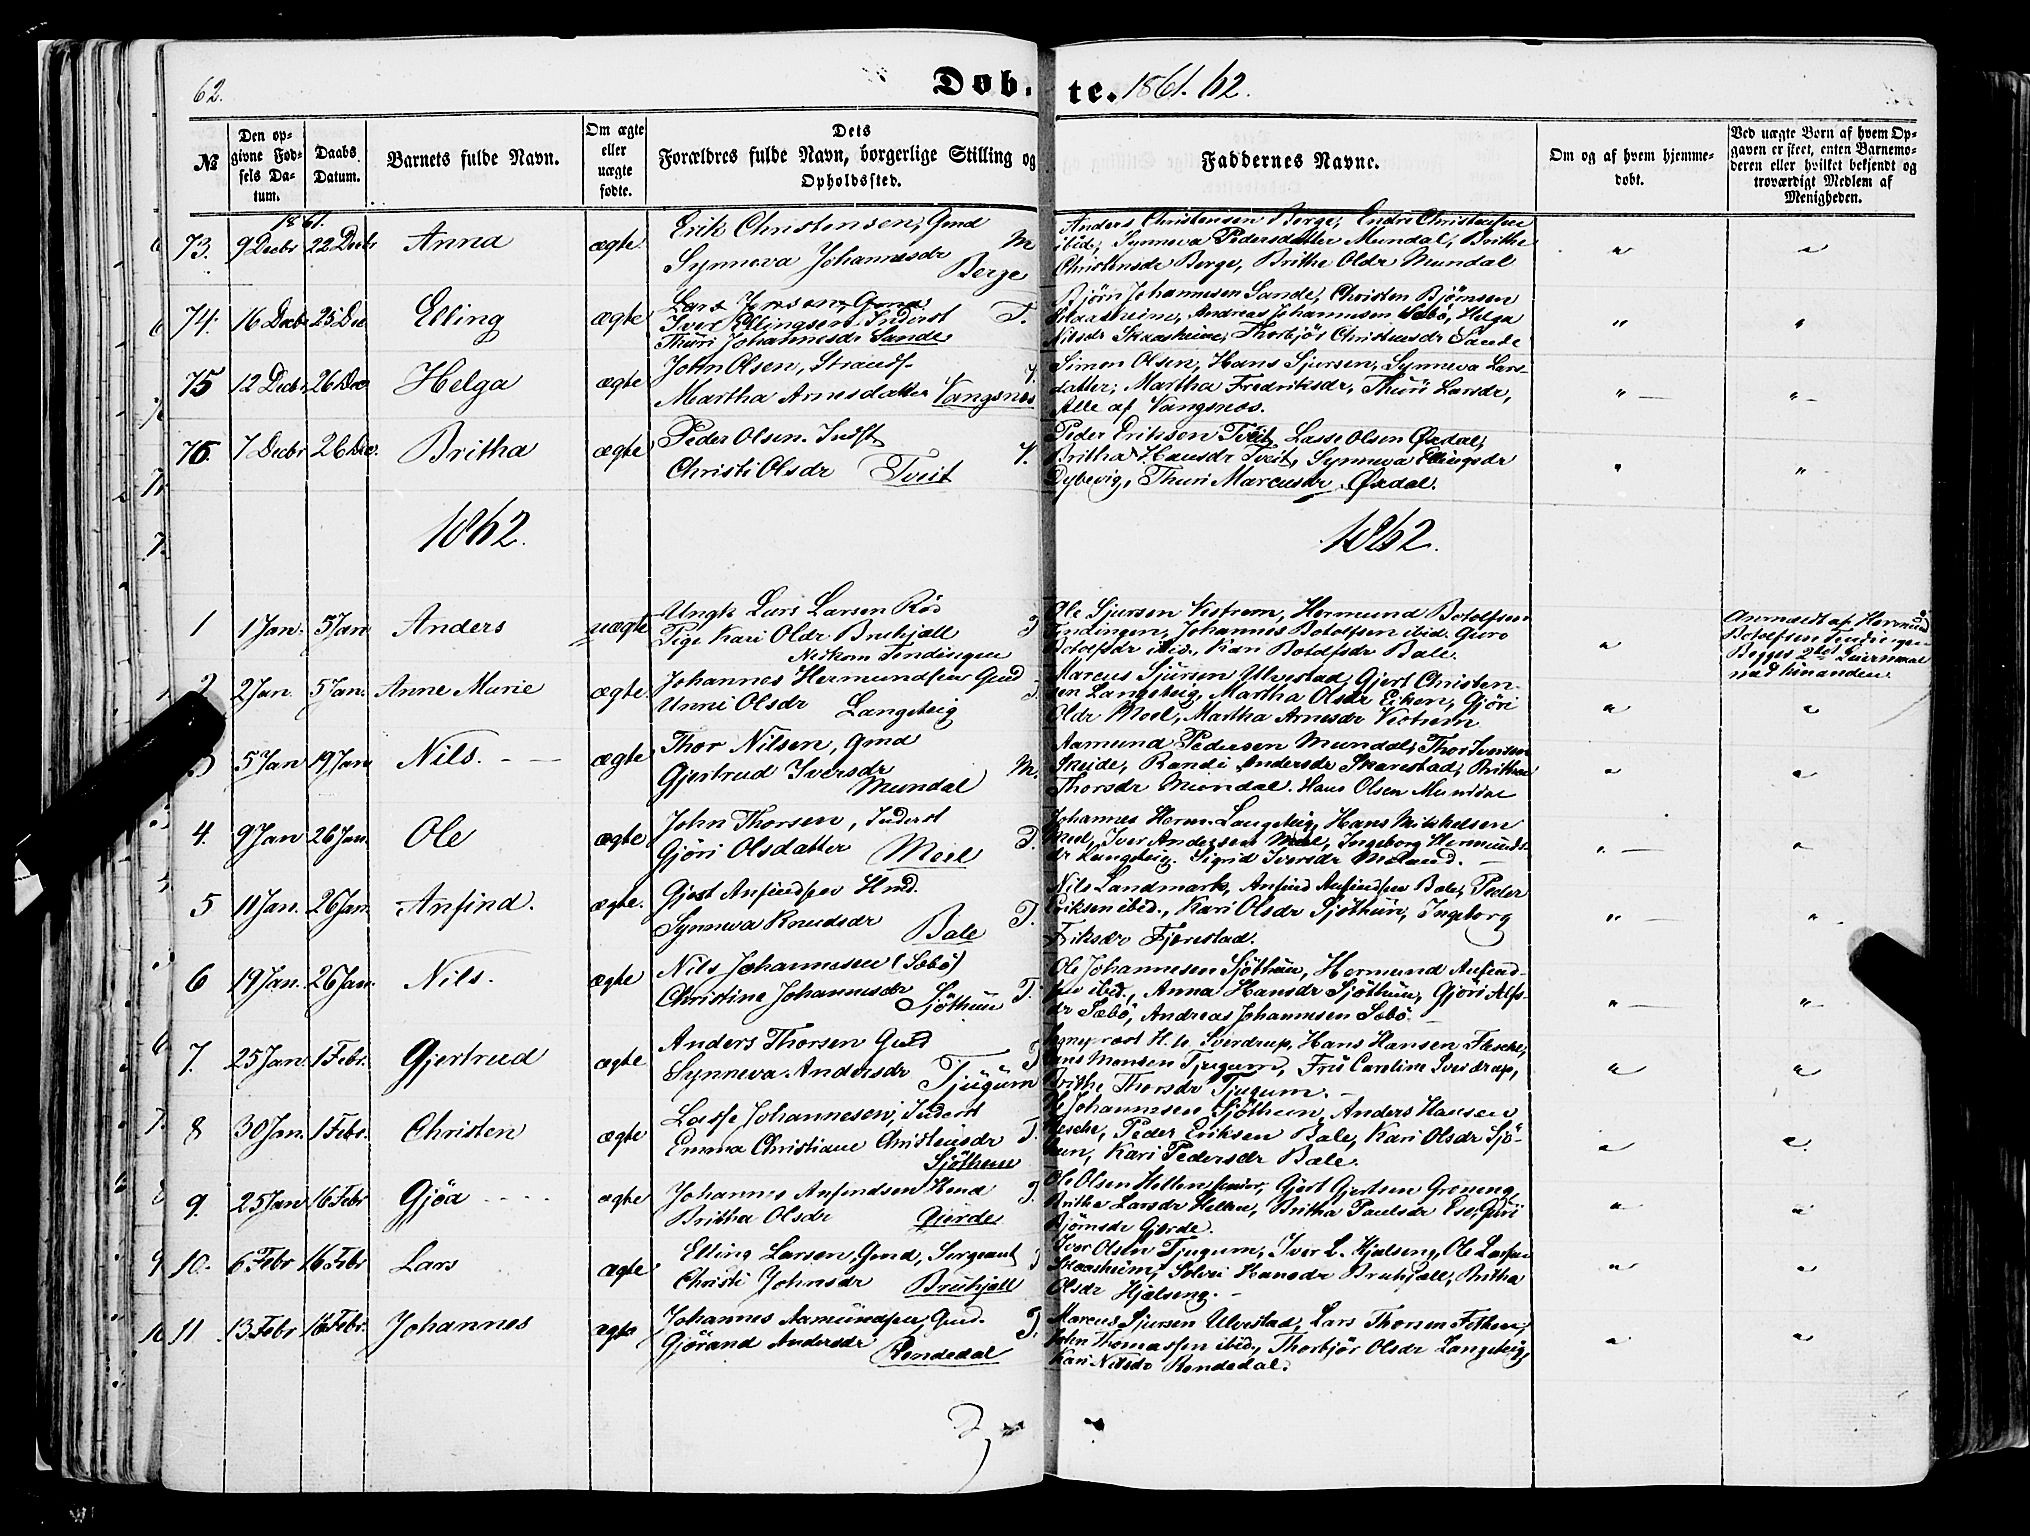 62.
Døb- te. 1861. 62.
№
Den opgivne Fødsels Datum.
Daabs Datum.
Barnets fulde Navn.
Om ægte eller uægte fødte.
Dets Forældres fulde Navn, borgerlige Stilling og Opholdssted.
Faddernes Navne.
Om og af hvem hjemmedøbt.
Ved uægte Børn af hvem Opgaven er skeet, enten Barnemoderen eller hvilket bekjendt og troværdigt Medlem af Menigheden.
1861.
73. 9 Decbr 22 Decbr Anna ægte.
Erik Christensen, Gmd M
Synneva Johannesdr Berge
Anders Christensen Berge, Endre Christensen
ibid; Synneva Pedersdatter Mundal, Brithe
Christensdr Berge, Brithe Olsdr Mundal
74. 16 Decbr 25 Dec Elling ægte
Lars Jensen, Gmd
Iver Ellingsen Inderst T.
Thuri Johannesdr Sande
Bjørn Johannesen Sande, Christen Bjørnsen
Skaasheim, Andreas Johannesen Sæbø, Helga
Nilsdr Skaasheim, Thorbjør Christensdr Sande
75 12 Decbr 26 Dec Helga ægte
John Olsen, Strands. V.
Martha Arnesdatter Vangsnes
Simon Olsen, Hans Sjursen, Synneva Lars-
datter, Martha Fredriksdr, Thuri Larsdr,
Alle af Vangsnes.
76. 7 Decbr 26 Dec. Britha ægte
Peder Olsen. Indst V.
Christi Olsdr Tveit
Peder Eriksen Tveit, Lasse Olsen Øxdal,
Britha Hansdr Tveit, Synneva Ellingsdr
Dybevig, Thuri Marcusdr Øxdal.
1862. 1862.
1 1 Jan. 5 Jan Anders uægte
Ungk. Lars Larsen Rød
Pige Kari Olsdr Bruhjell
Nedkom Tendingen
Ole Sjursen Vestrem, Hermund Botolfsen
Tendingen, Johannes Botolfsen ibid. Guro
Botolfsdr ibid, Kari Botolfsdr Bale.
Anmeldt af Hermund
Botolfsen Tendingen
Begges 2det Leiermaal
med hinanden.
2 2 Jan. 5 Jan. Anne Marie ægte.
Johannes Hermundsen Gmd
Unni Olsdr Langeteig
Marcus Sjursen Ulvestad, Gjert Christen-
sen Langeteig, Martha Olsdr Eiken, Gjöri
Olsdr Moel, Martha Arnesdr Vestrem
3 5 Jan 19 Jan Nils. ægte
Thor Nilsen, Gmd
Gjertrud Iversdr M.
Mundal
Aamund Pedersen Mundal, Thor Iversen
Skeide, Randi Andersdr Skarestad, Brithe
Thorsdr Mundal. Hans Olsen Mundal
4. 9 Jan 26 Jan. Ole ægte
John Thorsen, Inderst
Gjöri Olsdatter Meel T.
Johannes Herm. Langeteig, Hans Mikkelsen
Meel, Iver Andersen Meel, Ingeborg Hermunds
dr Langeteig. Sigrid Iversdr Meland.
5 11 Jan. 26 Jan. Anfind. ægte.
Gjest Anfindsen Hmd.
Synneva Knudsdr Bale T.
Nils Landmark, Anfind Anfindsen Bale, Peder
Eriksen ibid., Kari Olsdr Sjöthun, Ingeborg
Eriksdr Fjærestad.
6 19 Jan. 26 Jan. Nils. ægte
Nils Johannesen (Sæbö)
Christine Johannesdr Sjöthun T.
Ole Johannesen Sjöthun, Hermund Anfind-
sen ibid., Anna Hansdr Sjöthun, Gjöri Alfs-
dr Sæbö, Andreas Johannesen Sæbö.
7. 25 Jan 1 Febr. Gjertrud ægte
Anders Thorsen Gmd T
Synneva Andersdr Tjugum
Sognepræst H. U. Sverdrup, Hans Hansen Flesche,
Hans Monsen Tjugum, Fru Caroline Sverdrup,
Brithe Thorsdr Tjugum.
8 30 Jan. 1 Febr. Christen ægte
Lasse Johannesen, Inderst
Emma Christiane Christensdr T.
Sjöthun
Ole Johannesen Sjöthun, Anders Hansen
Flesche, Peder Eriksen Bale, Kari Olsdr Sjö-
thun, Kari Pedersdr Bale.
9. 25 Jan 16 Febr Gjöa ægte
Johannes Anfindsen Hmd T.
Britha Olsdr Gjerde
Ole Olsen Hellen senior, Gjert Gjertsen Gröneng,
Brithe Larsdr Hellen, Britha Paulsdr Ese, Guri
Bjørnsdr Gjerde.
10. 6 Febr 16 Febr Lars ægte
Elling Larsen, Gmd, Sergeant T
Christi Johnsdr Bruhjell
Iver Olsen Tjugum, Iver L. Hjelseng, Ole Larsen
Skaasheim, Solvei Hansdr Bruhjell, Britha
Olsdr Hjelseng.
11 13 Febr 16 Febr. Johannes ægte
Johannes Aamundsen, Gmd. T.
Gjörand Andersdr Rendedal
Marcus Sjursen Ulvestad, Lars Thorsen Fethen,
John Thomassen ibid, Thorbjör Olsdr Langeteig,
Kari Nilsdr Rendedal.